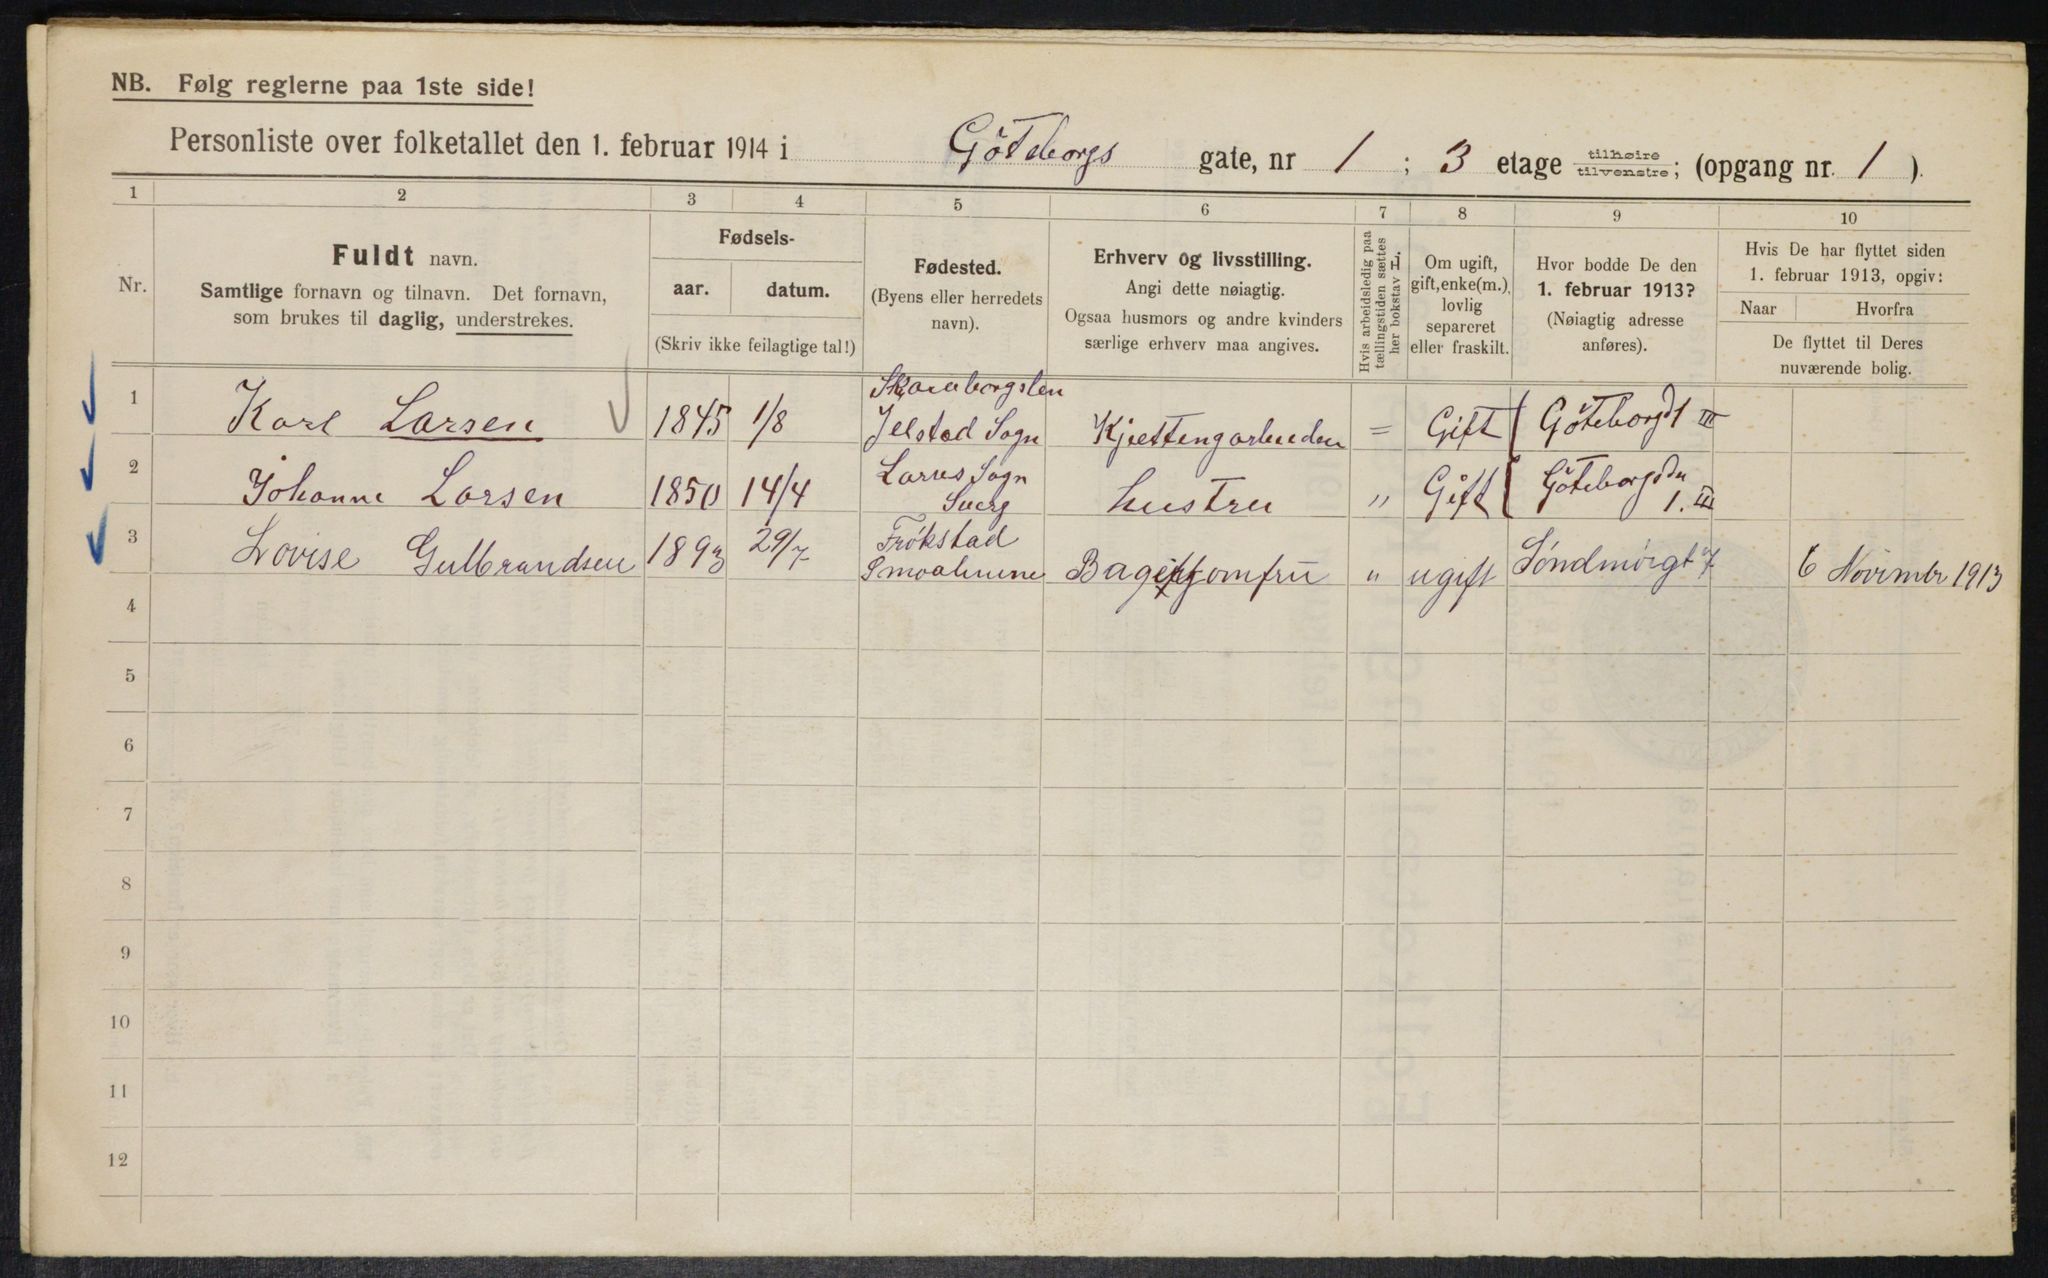 NB. Følg reglerne paa 1ste side!
Personliste over folketallet den 1. februar 1914 i Göteborgs gate, nr 1 ; 3 etage tilhøire tilvenstre; (opgang nr. 1 ).
1 2 3 4 5 6 7 8 9 10
Nr.
Fuldt navn.
Samtlige fornavn og tilnavn. Det fornavn,
som brukes til daglig, understrekes.
Fødsels-
aar. datum.
(Skriv ikke feilagtige tal!)
Fødested.
(Byens eller herredets
navn).
Erhverv og livsstilling.
Angi dette nøiagtig.
Ogsaa husmors og andre kvinders
særlige erhverv maa angives.
Hvis arbeidsledig paa
tællingstiden sættes
her bokstav L.
Om ugift,
gift, enke(m.),
lovlig
separeret
eller fraskilt.
Hvor bodde De den
1. februar 1913?
(Nøiagtig adresse
anføres).
Hvis De har flyttet siden
1. februar 1913, opgiv:
Naar Hvorfra
De flyttet til Deres
nuværende bolig.
1 Karl Larsen 1845 1/8 Jelstad Sogn = Gift Göteborgd 1 III
2 Johanne Larsen 1850 14/4 Larvs Sogn Sverg hustru " Gift Göteborgd 1. III
3 Lovise Gulbrandsen 1893 29/7 Trøkstad Smaalenene Bagerjomfru " ugift Søndmørgt 7 6 November 1913
4
5
6
7
8
9
10
11
12